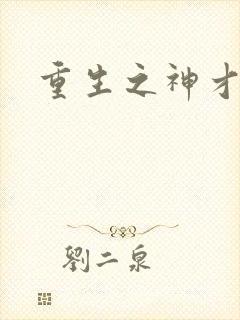 重生之神才
劉二泉